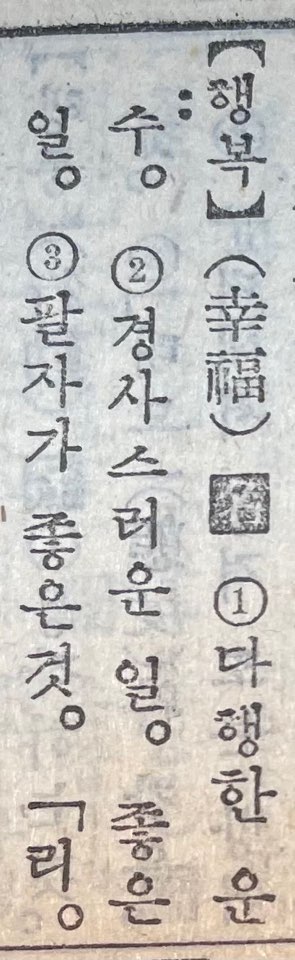 【행:복】(幸福) 名 ①다행한 운
수。 ②경사스러운 일。 좋은
일。 ③팔자가 좋은것。 「리。